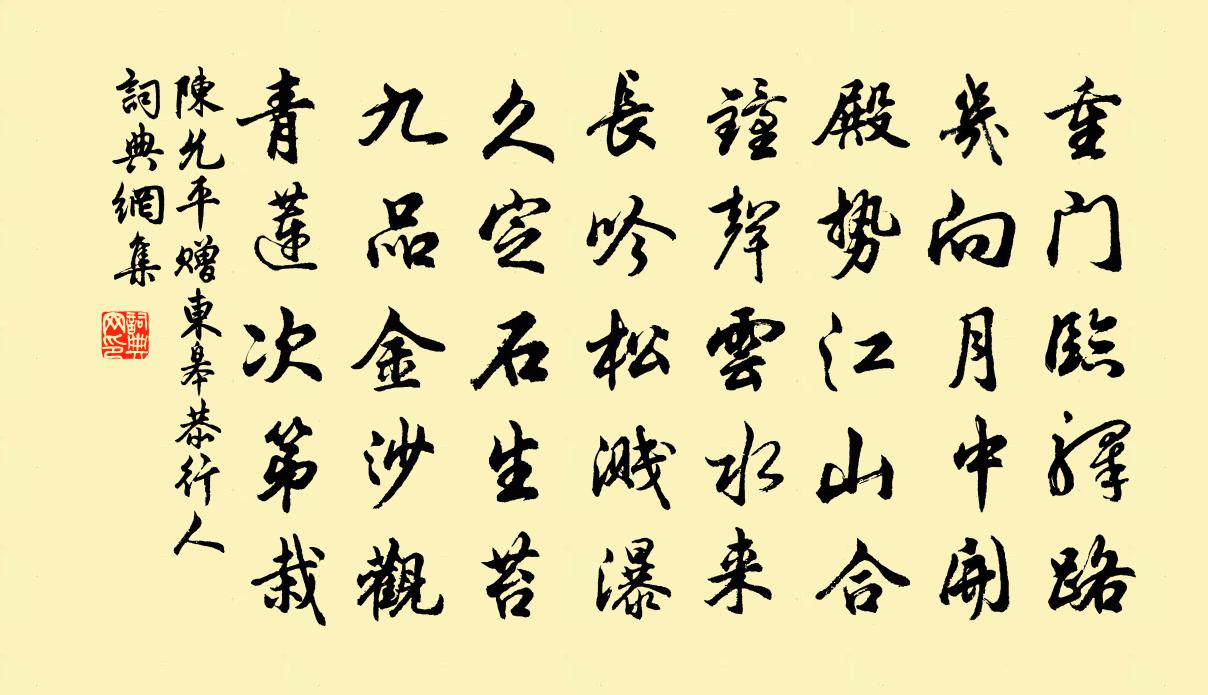 重门臨驛路
幾向月中開
殿勢江山合
鐘聲雲水来
長吟松濺瀑
久定石生苔
九品金沙觀
青蓮次第栽
陳允平赠東皋恭行人
詞典網集
詞典网印